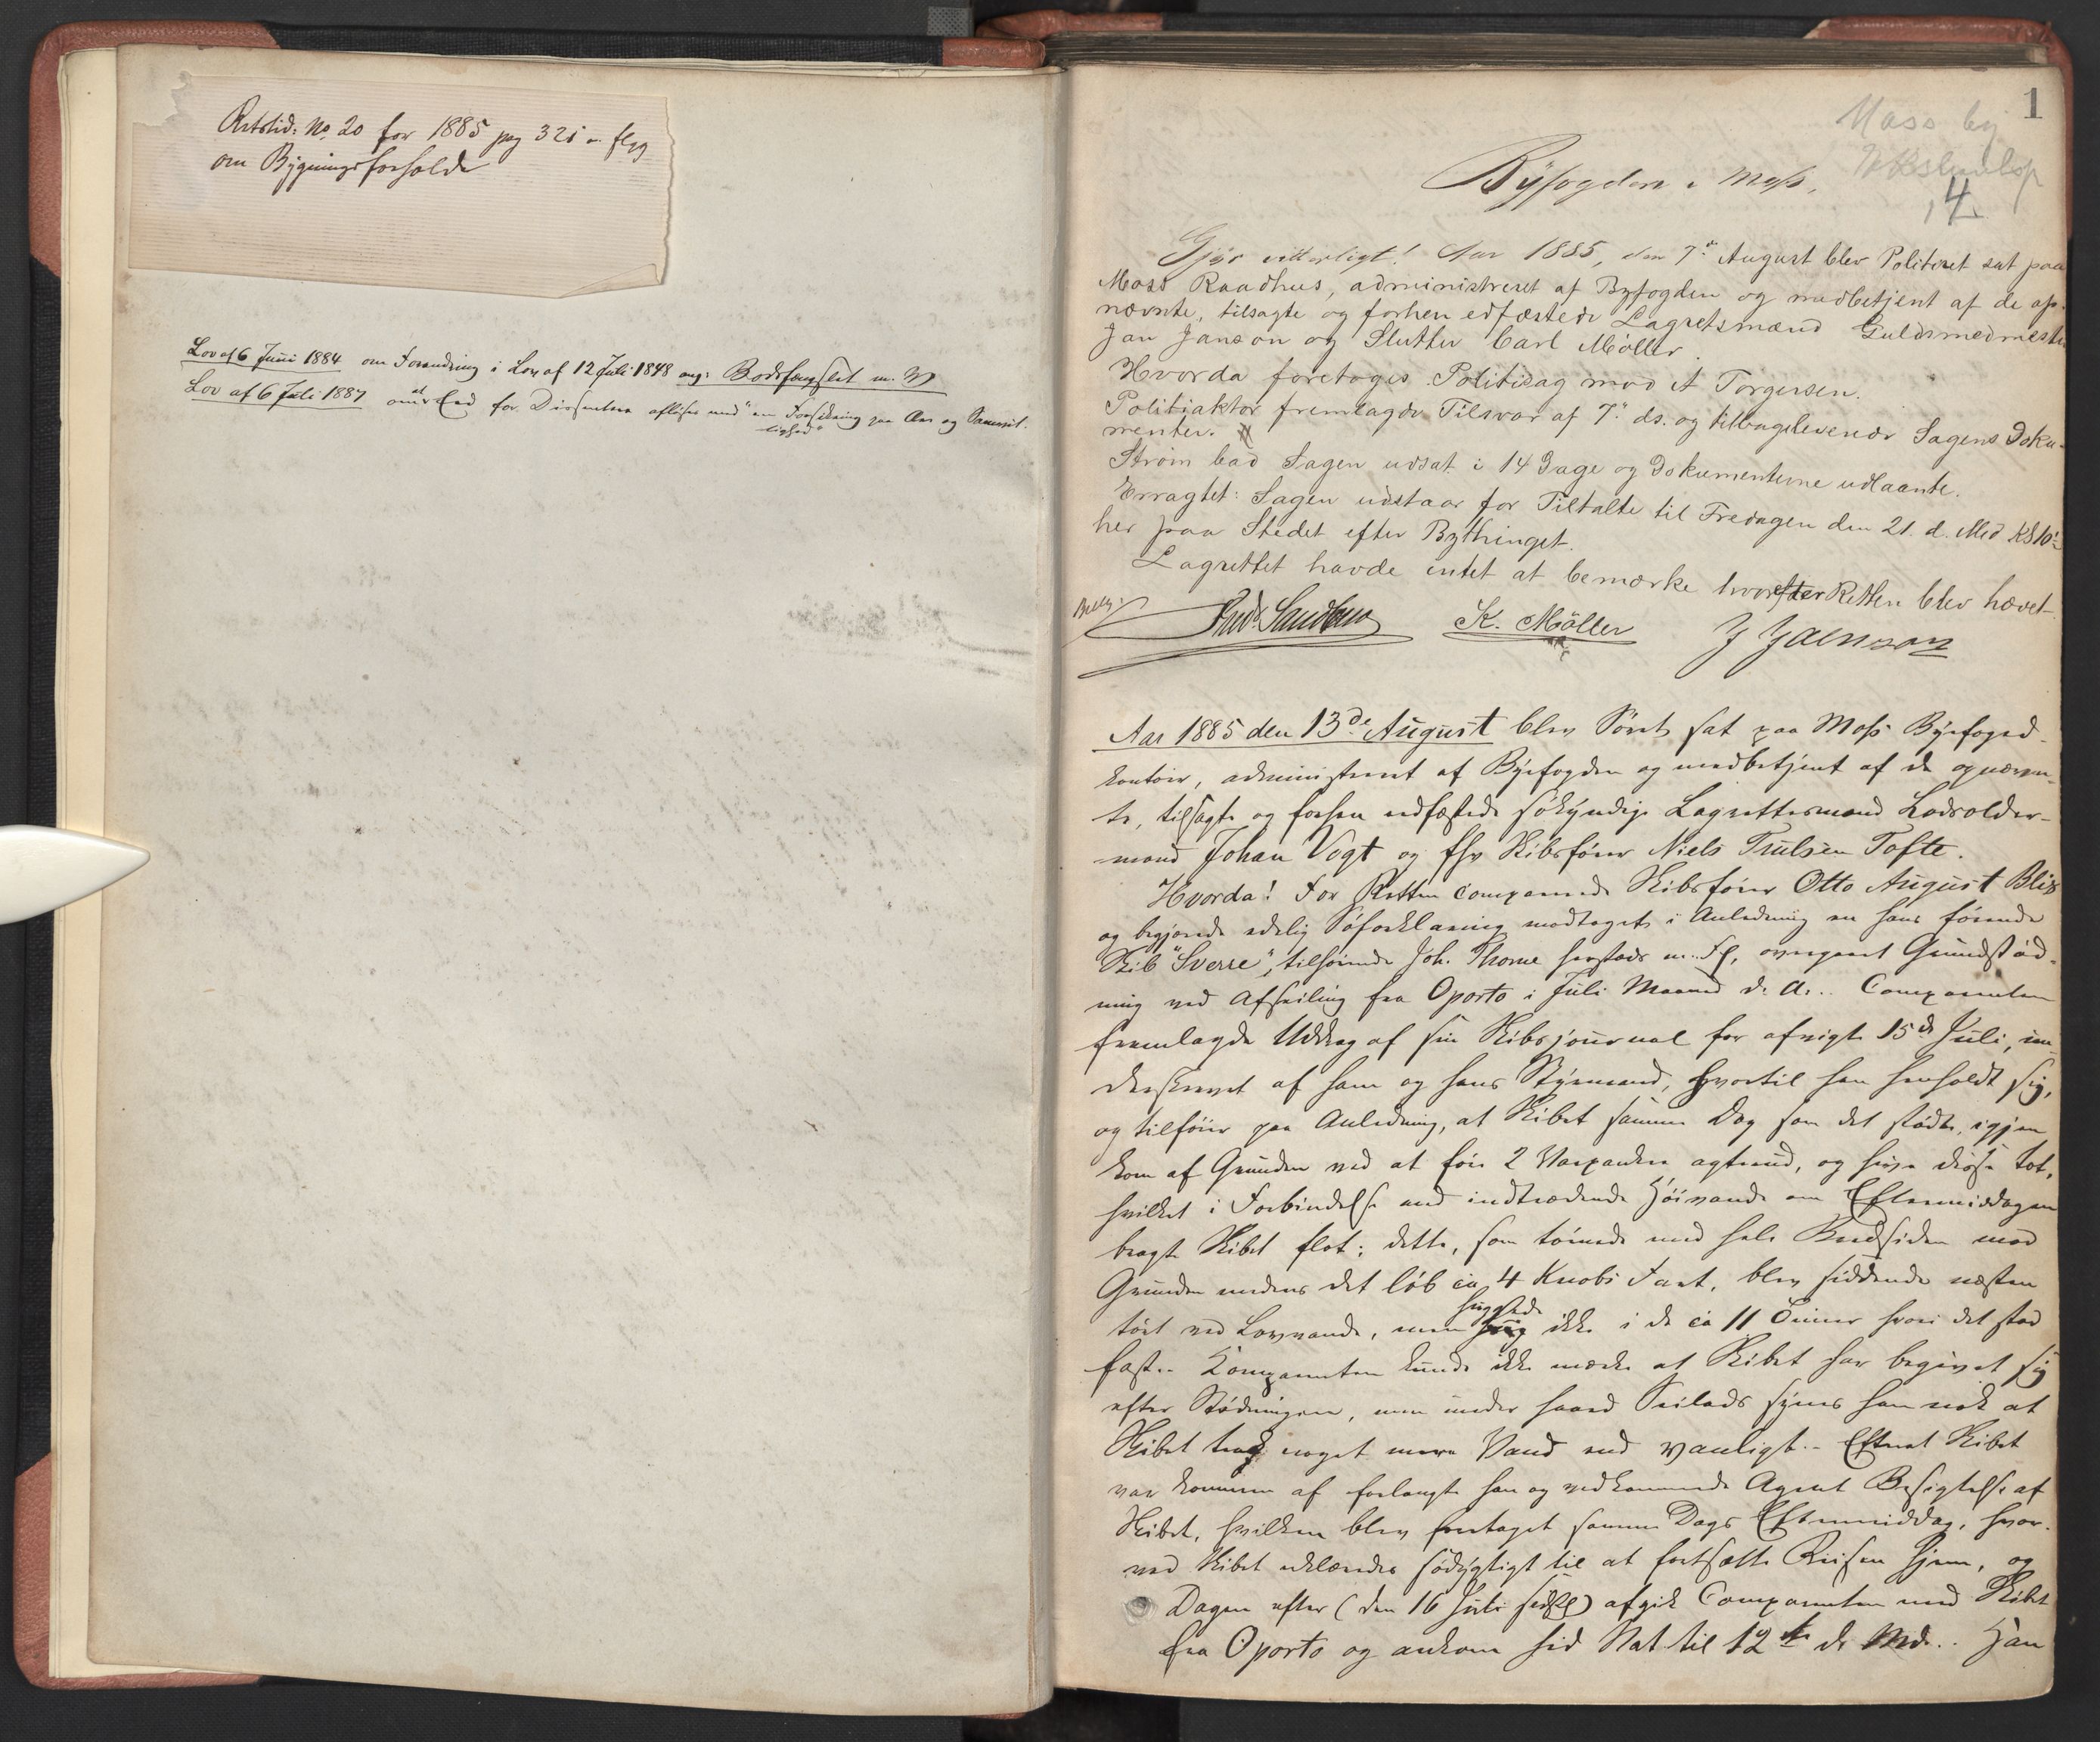 Retstid: No. 20 for 1885 pag 321 flg
om Bygningsforholde
Lov af 6 Juni 1884 om Forandring i Lov af 12 Juli 1848 ang: Bodsfængslet m. V
Lov af 6 Juli 1887 om at Ed for Dissentere afløses med "en Forsikring paa Ære og Samvit-
tighed"
1
Moss by
4
Byfogden i Moss,
Gjør vitterligt! Aar 1885, den 7de August blev Politiret sat paa
Moss Raadhus, administreret af Byfogden og medbetjent af de op-
nævnte, tilsagte og forhen edfæstede Lagretsmænd Guldsmedmester
Jan Janson og Slutter Carl Møller.
Hvorda foretoges Politisag mod A Torgersen.
Politiaktor fremlagde Tilsvar af 7de ds. og tilbageleverede Sagens Doku-
menter.
Strøm bad Sagen udsat i 14 Dage og Dokumenterne udlaante.
Erragtet: Sagen udstaar for Tiltalte til Fredagen den 21. d. Md Kl 10
her paa Stedet efter Bythinget.
Lagrettet havde intet at bemærke hvorefter Retten blev hævet
Fred. Sandberg K. Möller J Jaenson
Aar 1885 den 13de August blev Søret sat paa Moss Byefoged-
kontoir, administreret af Byefogden og medbetjent af de opnævn-
te, tilsagte og forhen edfæstede søkyndige Lagrettesmænd Lodsolder-
mand Johan Vogt og fhv Skibsfører Niels Trulsen Tofte.
Hvorda! For Retten comparerede Skibsfører Otto August Blix
og begjærede edelig Søforklaring modtaget i Anledning en hans førende
Skib "Sverre", tilhørende Joh. Thorne herstads m. Fl, overgaaet Grundstød-
ning ved Afseiling fra Oporto i Juli Maaned d. A. Comparenten
fremlagde Uddrag af sin Skibsjournal for afvigte 15de Juli, un-
derskrevet af ham og hans Styrmand, hvortil han henholdt sig,
og tilføier paa Anledning, at Skibet samme Dag som det stødte, igjen
kom af Grunden ved at føre 2 Varpankere agterud, og hive disse tot,
hvilket i Forbindelse med indtrædende Høivande om Eftermiddagen
bragte Skibet flot; dette, som tørnede med hele Bredsiden mod
Grunden medens det løb ca 4 Knobs Fart, blev siddende næsten
tørt ved Lavvande, men huggede ikke i de ca 11 Timer hvori det stod
fast. Komparenten kunde ikke mærke at Skibet har begivet sig
efter Stødningen, men under haard Seilads synes han nok at
Skibet trak noget mere Vand end vanligt. Efterat Skibet
var kommen af forlangte han og vedkommende Agent Besigtelse af
Skibet, hvilken blev foretaget samme Dags Eftermiddag, hvor-
ved Skibet erklæredes sødygtigt til at fortsætte Reisen hjem, og
Dagen efter (den 16 Juli sidstl) afgik Comparenten med Skibet
fra Oporto og ankom hid Nat til 12te ds Md. Han